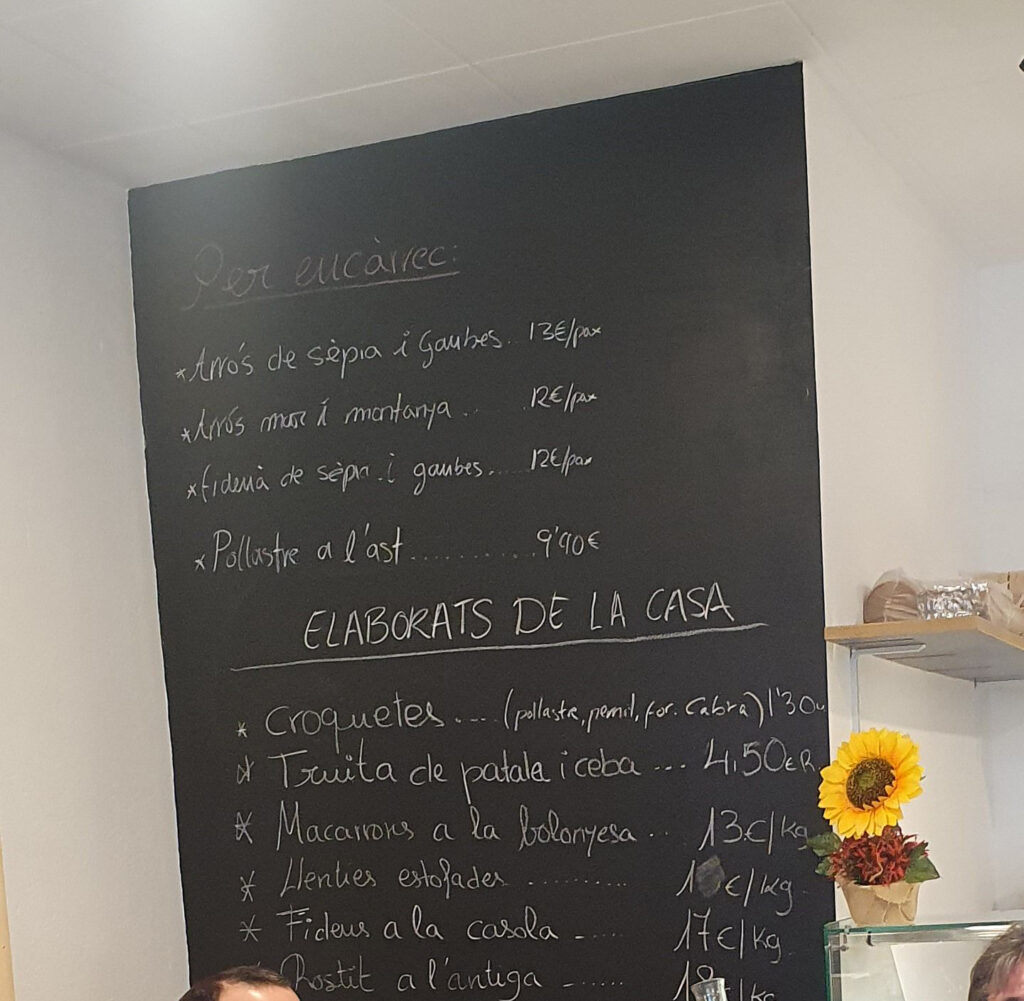 Per encàrrec:
*Arròs de sèpia i gambes. 13€/pax
*Arròs mar i montanya .. 12€/pax
*Fideuà de sèpia i gambes... 12€/pax
*Pollastre a l'ast............ 9'90€
ELABORATS DE LA CASA
* Croquetes.... (pollastre, pernil, for. Cabra) 1'30
* Truita de patata i ceba ... 4,50€
* Macarrons a la bolonyesa .. 13€/kg
* Llenties estofades ........... €/kg
* Fideus a la casola ...... 17€/kg
Rostit a l'antiga ......